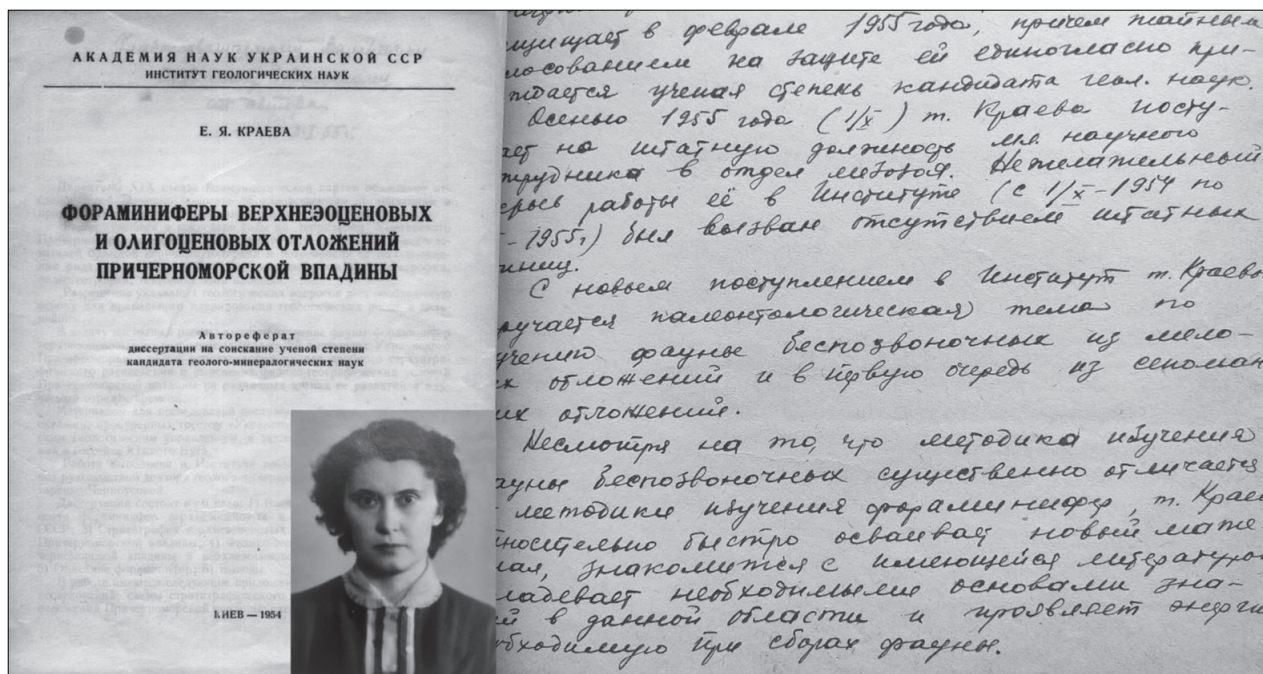 АКАДЕМИЯ НАУК УКРАИНСКОЙ ССР
ИНСТИТУТ ГЕОЛОГИЧЕСКИХ НАУК
Е. Я. КРАЕВА
ФОРАМИНИФЕРЫ ВЕРХНЕЭОЦЕНОВЫХ
И ОЛИГОЦЕНОВЫХ ОТЛОЖЕНИЙ
ПРИЧЕРНОМОРСКОЙ ВПАДИНЫ
Автореферат
диссертации на соискание ученой степени
кандидата геолого-минералогических наук
КИЕВ — 1954
щищает в феврале 1955 года, причем тайным
лосованием на защите ей единогласно при-
ждается ученая степень кандидата геол. наук.
Осенью 1955 года (1/X) т. Краева посту-
ает на штатную должность мл. научного
трудника в отдел мезозоя. Нежелательный
ерыв работы её в Институте (с 1/X-1954 по
-1955г) был вызван отсутствием штатных
иниц.
С новым поступлением в Институт т. Краево
ручается палеонтологическая тема по
учению фауны беспозвоночных из мело-
х отложений и в первую очередь из сеноман
их отложений.
Несмотря на то, что методика изучения
ауны беспозвоночных существенно отличается
методики изучения фораминифер, т. Крае
носительно быстро осваивает новый мате-
иал, знакомится с имеющейся литературо
ладевает необходимыми основами зна-
й в данной области и проявляет энерги
обходимую при сборах фауны.